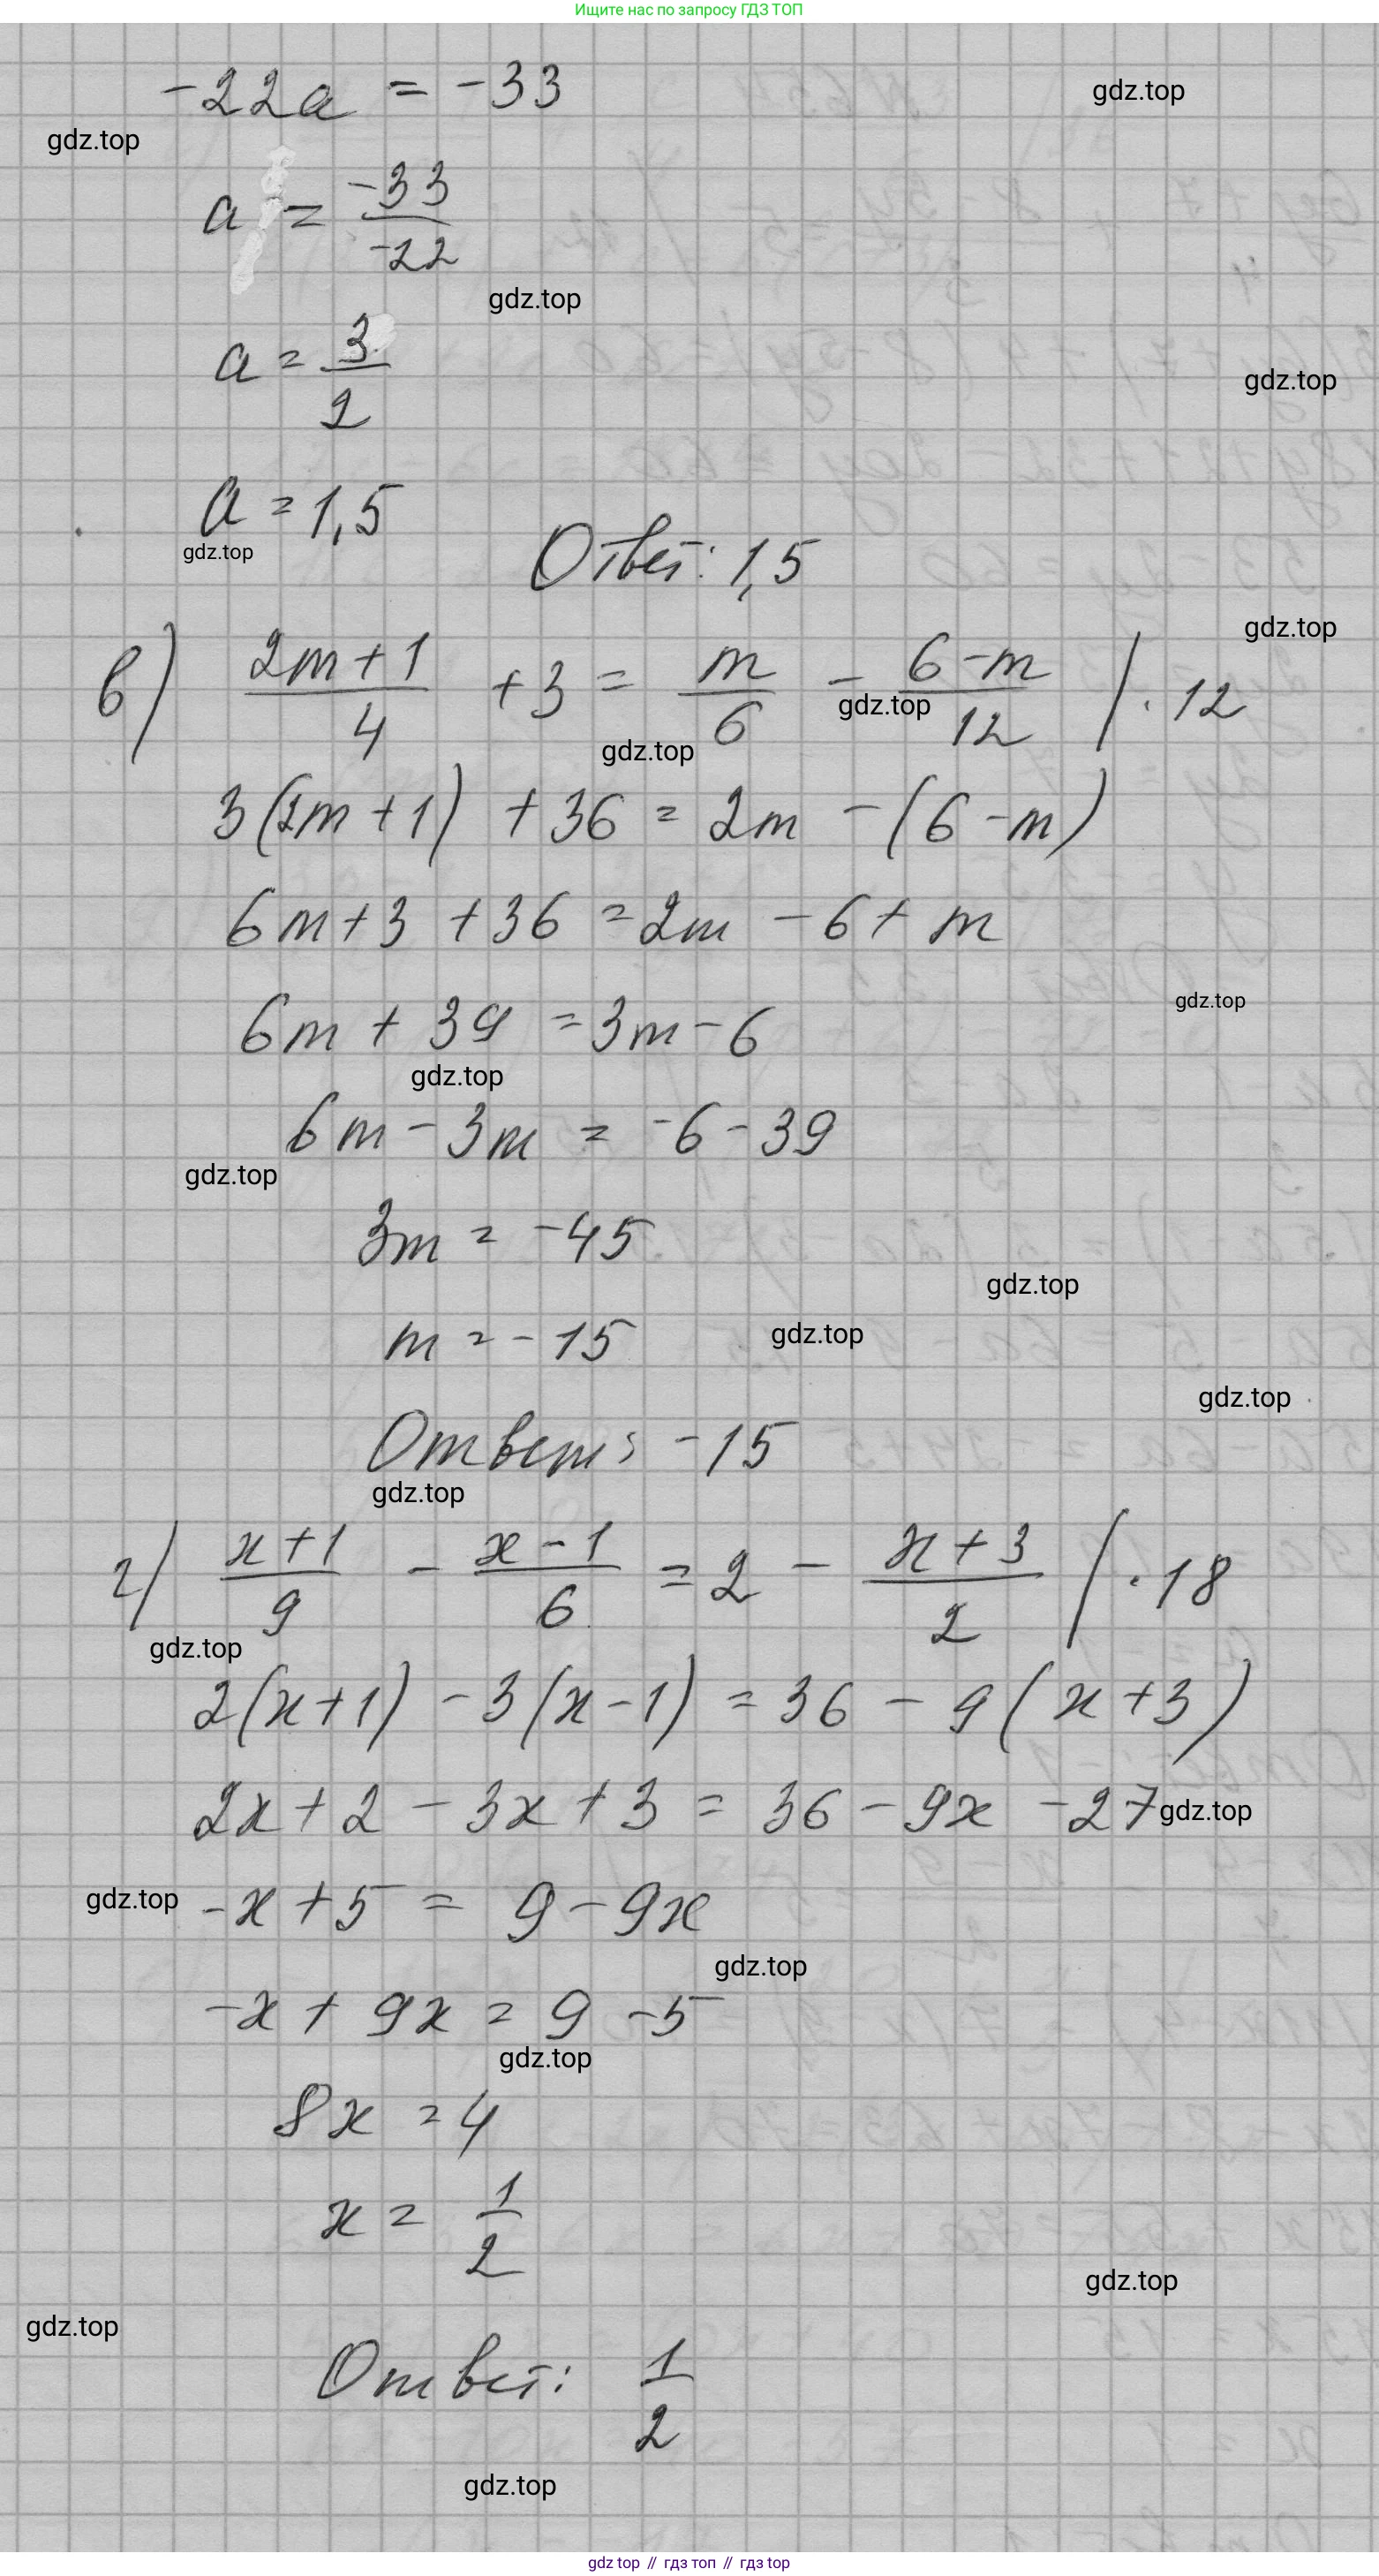 Ищите нас по запросу ГДЗ ТОП
-22a = -33
gdz.top
gdz.top
a = -33/-22
gdz.top
a = 3/2
gdz.top
a = 1,5
gdz.top
Ответ: 1,5
gdz.top
в) (2m+1)/4 + 3 = m/6 - (6-m)/12 | · 12
gdz.top
gdz.top
3(2m+1) + 36 = 2m - (6-m)
6m+3 + 36 = 2m - 6 + m
6m + 39 = 3m - 6
gdz.top
gdz.top
6m - 3m = -6 - 39
gdz.top
3m = -45
gdz.top
m = -15
gdz.top
gdz.top
Ответ: -15
gdz.top
г) (x+1)/9 - (x-1)/6 = 2 - (x+3)/2 | · 18
gdz.top
2(x+1) - 3(x-1) = 36 - 9(x+3)
2x+2 - 3x+3 = 36 - 9x - 27
gdz.top
gdz.top
-x+5 = 9 - 9x
gdz.top
-x + 9x = 9 - 5
gdz.top
8x = 4
x = 1/2
gdz.top
gdz.top
Ответ: 1/2
gdz.top
gdz top // гдз топ // гдз top